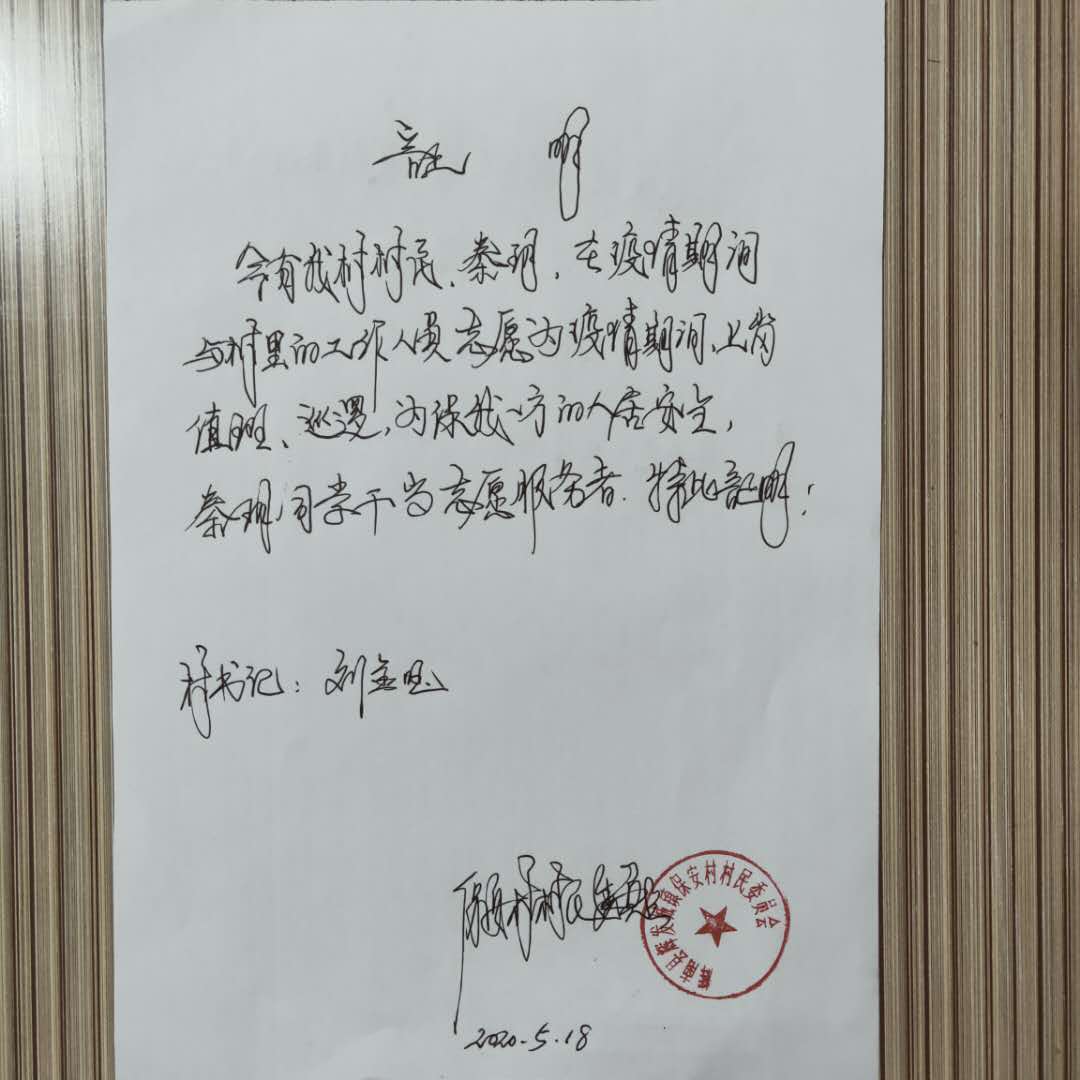 证 明
今有我村村民、秦玥，在疫情期间
与村里的工作人员志愿为疫情期间，上岗
值班、巡逻，为保我一方的人居安全，
秦玥同学干当志愿服务者．特此证明！
村书记：刘金旺
保安村村民委员会
辉南县辉发城镇保安村村民委员会
2020.5.18